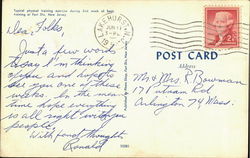 Typical physical training exercise during first week of basic
training at Fort Dix, New Jersey
LAKEHURST, N.J.
Dear Folks,
Just a few words
today I'm thinking
of you and hope to
see you one of these
In the mean
time hope everything
is all right with you
people.
With fond thoughts,
POST CARD
Address
Mr & Mrs R. Bowman
17 Putnam Rd
Arlington 74 Mass.